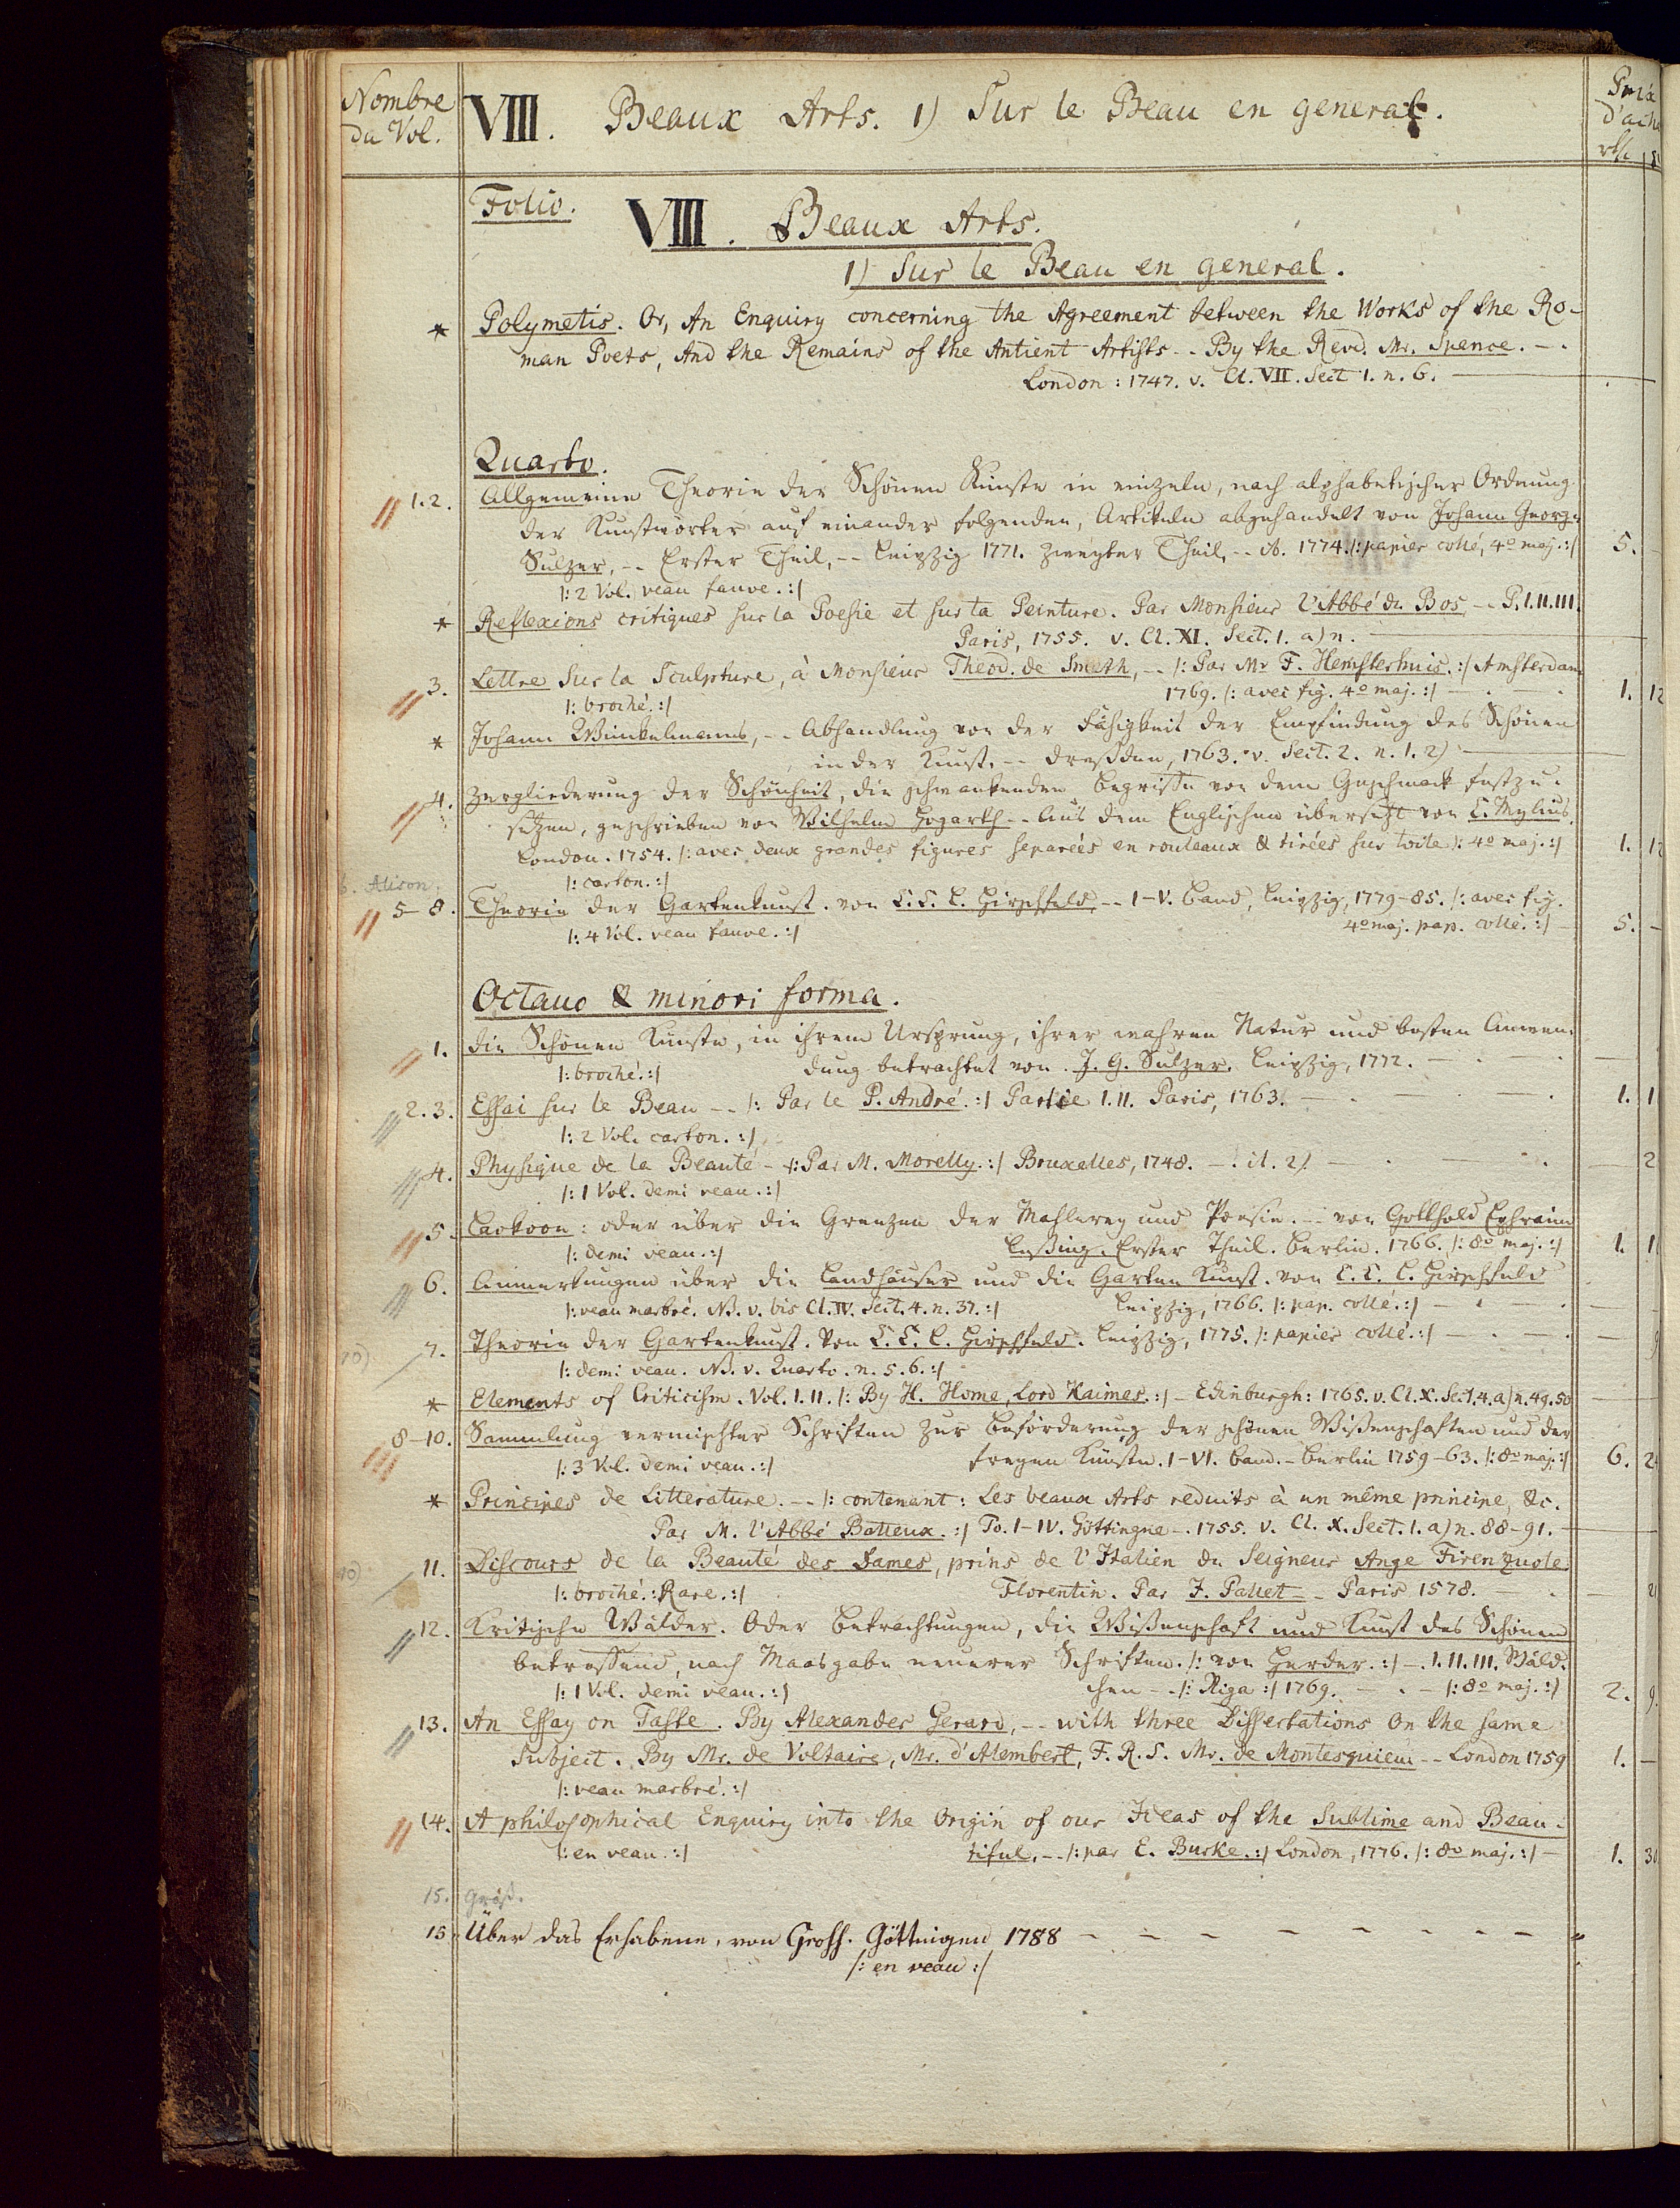 Nombre
du Vol.
VIII. Beaux Arts. 1) Sur le Beau en general.
Prix
d'acha
rt. | s
Folio.
VIII. Beaux Arts.
1) Sur le Beau en general.
* Polymetis. Or, An Enquiry concerning the Agreement between the Works of the Ro-
man Poets, And the Remains of the Antient Artists -- By the Revd. Mr. Spence. -.
London: 1747. v. Cl. VII. Sect 1. n. 6.
Quarto.
1.2. Allgemeine Theorie der Schönen Künste in einzeln, nach alphabetischer Ordnung
der Kunstwörter auf einander folgenden, Artikeln abgehandelt von Johann George
Sulzer, -- Erster Theil, -- Leipzig 1771. Zweyter Theil, -- it. 1774. /: papier collé, 4o maj. :/ 5. -
/: 2 Vol. veau fauve. :/
* Reflexions critiques sur la Poesie et sur la Peinture. Par Monsieur l'Abbé du Bos -- P. I. II. III.
Paris, 1755. v. Cl. XI. Sect. 1. a) n.
3. Lettre sur la Sculpture, à Monsieur Theod. de Smeth, -- /: Par Mr F. Hemsterhuis. :/ Amsterdam
1769. /: avec fig. 4o maj. :/ 1. 12
/: broché. :/
* Johann Winkelmanns, -- Abhandlung von der Fähigkeit der Empfindung des Schönen
in der Kunst. -- Dreßden, 1763. v. Sect. 2. n. 1. 2)
4. Zergliederung der Schönheit, die schwankenden Begriffe von dem Geschmack festzu-
setzen, geschrieben von Wilhelm Hogarth -- Aus dem Englischen übersetzt von C. Mylius.
London. 1754. /: avec deux grandes figures separées en rouleaux & tirées sur toile): 4o maj. :/ 1. 12
/: carton. :/
6. Alison.
5-8. Theorie der Gartenkunst. von C. C. L. Hirschfeld, -- I-V. Band, Leipzig, 1779-85. /: avec fig.
4o maj. pap. collé. :/ 5. -
/: 4 Vol. veau fauve. :/
Octavo & minori forma.
1. Die Schönen Künste, in ihrem Ursprung, ihrer wahren Natur und besten Anwen-
dung betrachtet von J. G. Sulzer. Leipzig, 1772.
/: broché. :/
2.3. Essai sur le Beau -- /: Par le P. André. :/ Partie I. II. Paris, 1763. 1. 1
/: 2 Vol. carton. :/
4. Physique de la Beauté - /: Par M. Morelly. :/ Bruxelles, 1748. 2
/: 1 Vol. demi veau. :/
5. Laokoon: oder über die Grenzen der Mahlerey und Poesie. -- von Gotthold Ephraim
Leßing. Erster Theil. Berlin. 1766. /: 8o maj. :/ 1. 1
/: demi veau. :/
6. Anmerkungen über die Landhäuser und die Garten Kunst. von C. C. L. Hirschfeld
Leipzig, 1766. /: pap. collé. :/
/: veau marbré. NB. v. bis Cl. IV. Sect. 4. n. 37. :/
7. Theorie der Gartenkunst. Von C. C. L. Hirschfeld. Leipzig, 1775. /: papier collé. :/
/: demi veau. NB. v. Quarto. n. 5. 6. :/
* Elements of Criticism. Vol. I. II. /: By H. Home, Lord Kaimes. :/ - Edinburgh: 1765. v. Cl. X. Sect. 4. a) n. 49. 50
8-10. Sammlung vermischter Schriften zur Beförderung der schönen Wißenschaften und der
freyen Künste. I-VI. Band. - Berlin 1759-63. /: 8o maj. :/ 6. 2
/: 3 Vol. demi veau. :/
* Principes de Litterature. -- /: contenant: Les beaux Arts reduits à un même principe, &c.
Par M. l'Abbé Batteux. :/ To. I-IV. Göttingue -. 1755. v. Cl. X. Sect. 1. a) n. 88-91.
11. Discours de la Beauté des Dames, prins de l'Italien du Seigneur Ange Firenzuole
Florentin. Par J. Pallet -- Paris 1578.
/: broché. :Rare. :/
12. Kritische Wälder. Oder Betrachtungen, die Wißenschaft und Kunst des Schönen
betreffend, nach Maasgabe neuerer Schriften. /: von Herder. :/ -. I. II. III. Wäld-
chen -- /: Riga :/ 1769. /: 8o maj. :/ 2. 9.
/: 1 Vol. demi veau. :/
13. An Essay on Taste. By Alexander Gerard, -- with three Dissertations On the same
Subject. By Mr. de Voltaire, Mr. d'Alembert, F. R. S. Mr. de Montesquieu -- London 1759 1. -
/: veau marbré. :/
14. A philosophical Enquiry into the Origin of our Ideas of the Sublime and Beau-
tiful. -- /: par E. Burke. :/ London, 1776. /: 8o maj. :/ 1. 30
/: en veau. :/
15. Groß.
15. Über das Erhabene, von Gross. Göttingen 1788
/: en veau :/